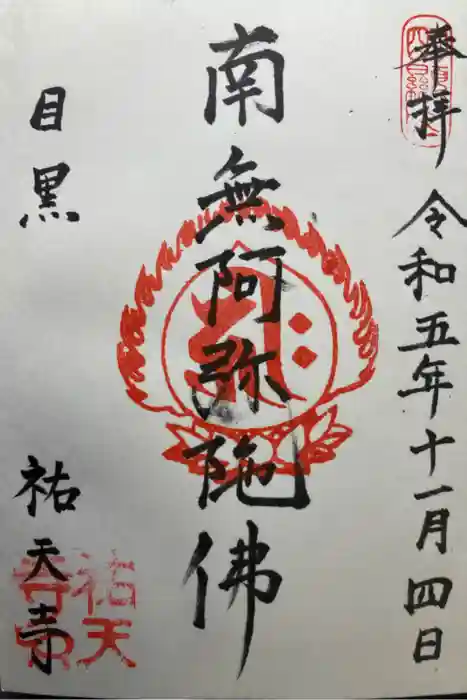 奉拝
令和五年十一月四日
南無阿弥陀佛
目黒
祐天寺
祐天
寺印